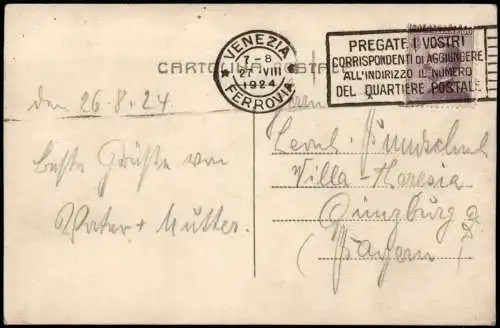 VENEZIA
7-8
27 VIII
1924
FERROVIA
PREGATE I VOSTRI
CORRISPONDENTI DI AGGIUNGERE
ALL'INDIRIZZO IL NUMERO
DEL QUARTIERE POSTALE
CARTOLINA POSTALE
den 26.8.24
Herrn
beste Grüße von
Vater + Mutter.
Villa Theresia
Günzburg a/D
(Bayern)